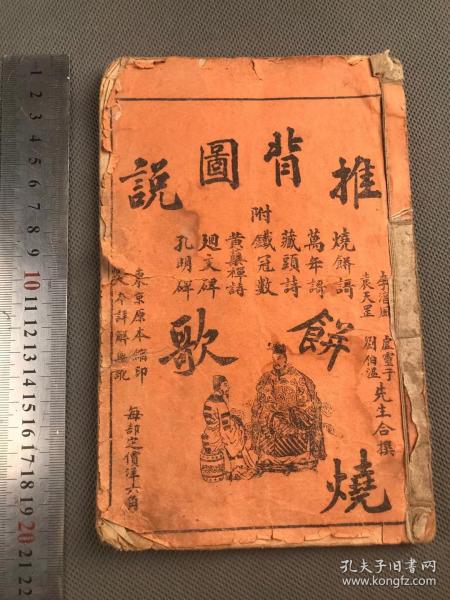 推背圖說
燒餅歌
附
燒餅謌
萬年謌
藏頭詩
鐵冠數
黃蘗禪詩
廻文碑
孔明碑
李淳風
袁天罡
虛靈子
劉伯溫
先生合撰
東京原本縮印
每部定價洋六角
1
2
3
4
5
6
7
8
9
10
11
12
13
14
15
16
17
18
19
20
21
22
孔夫子旧书网
www.kongfz.com